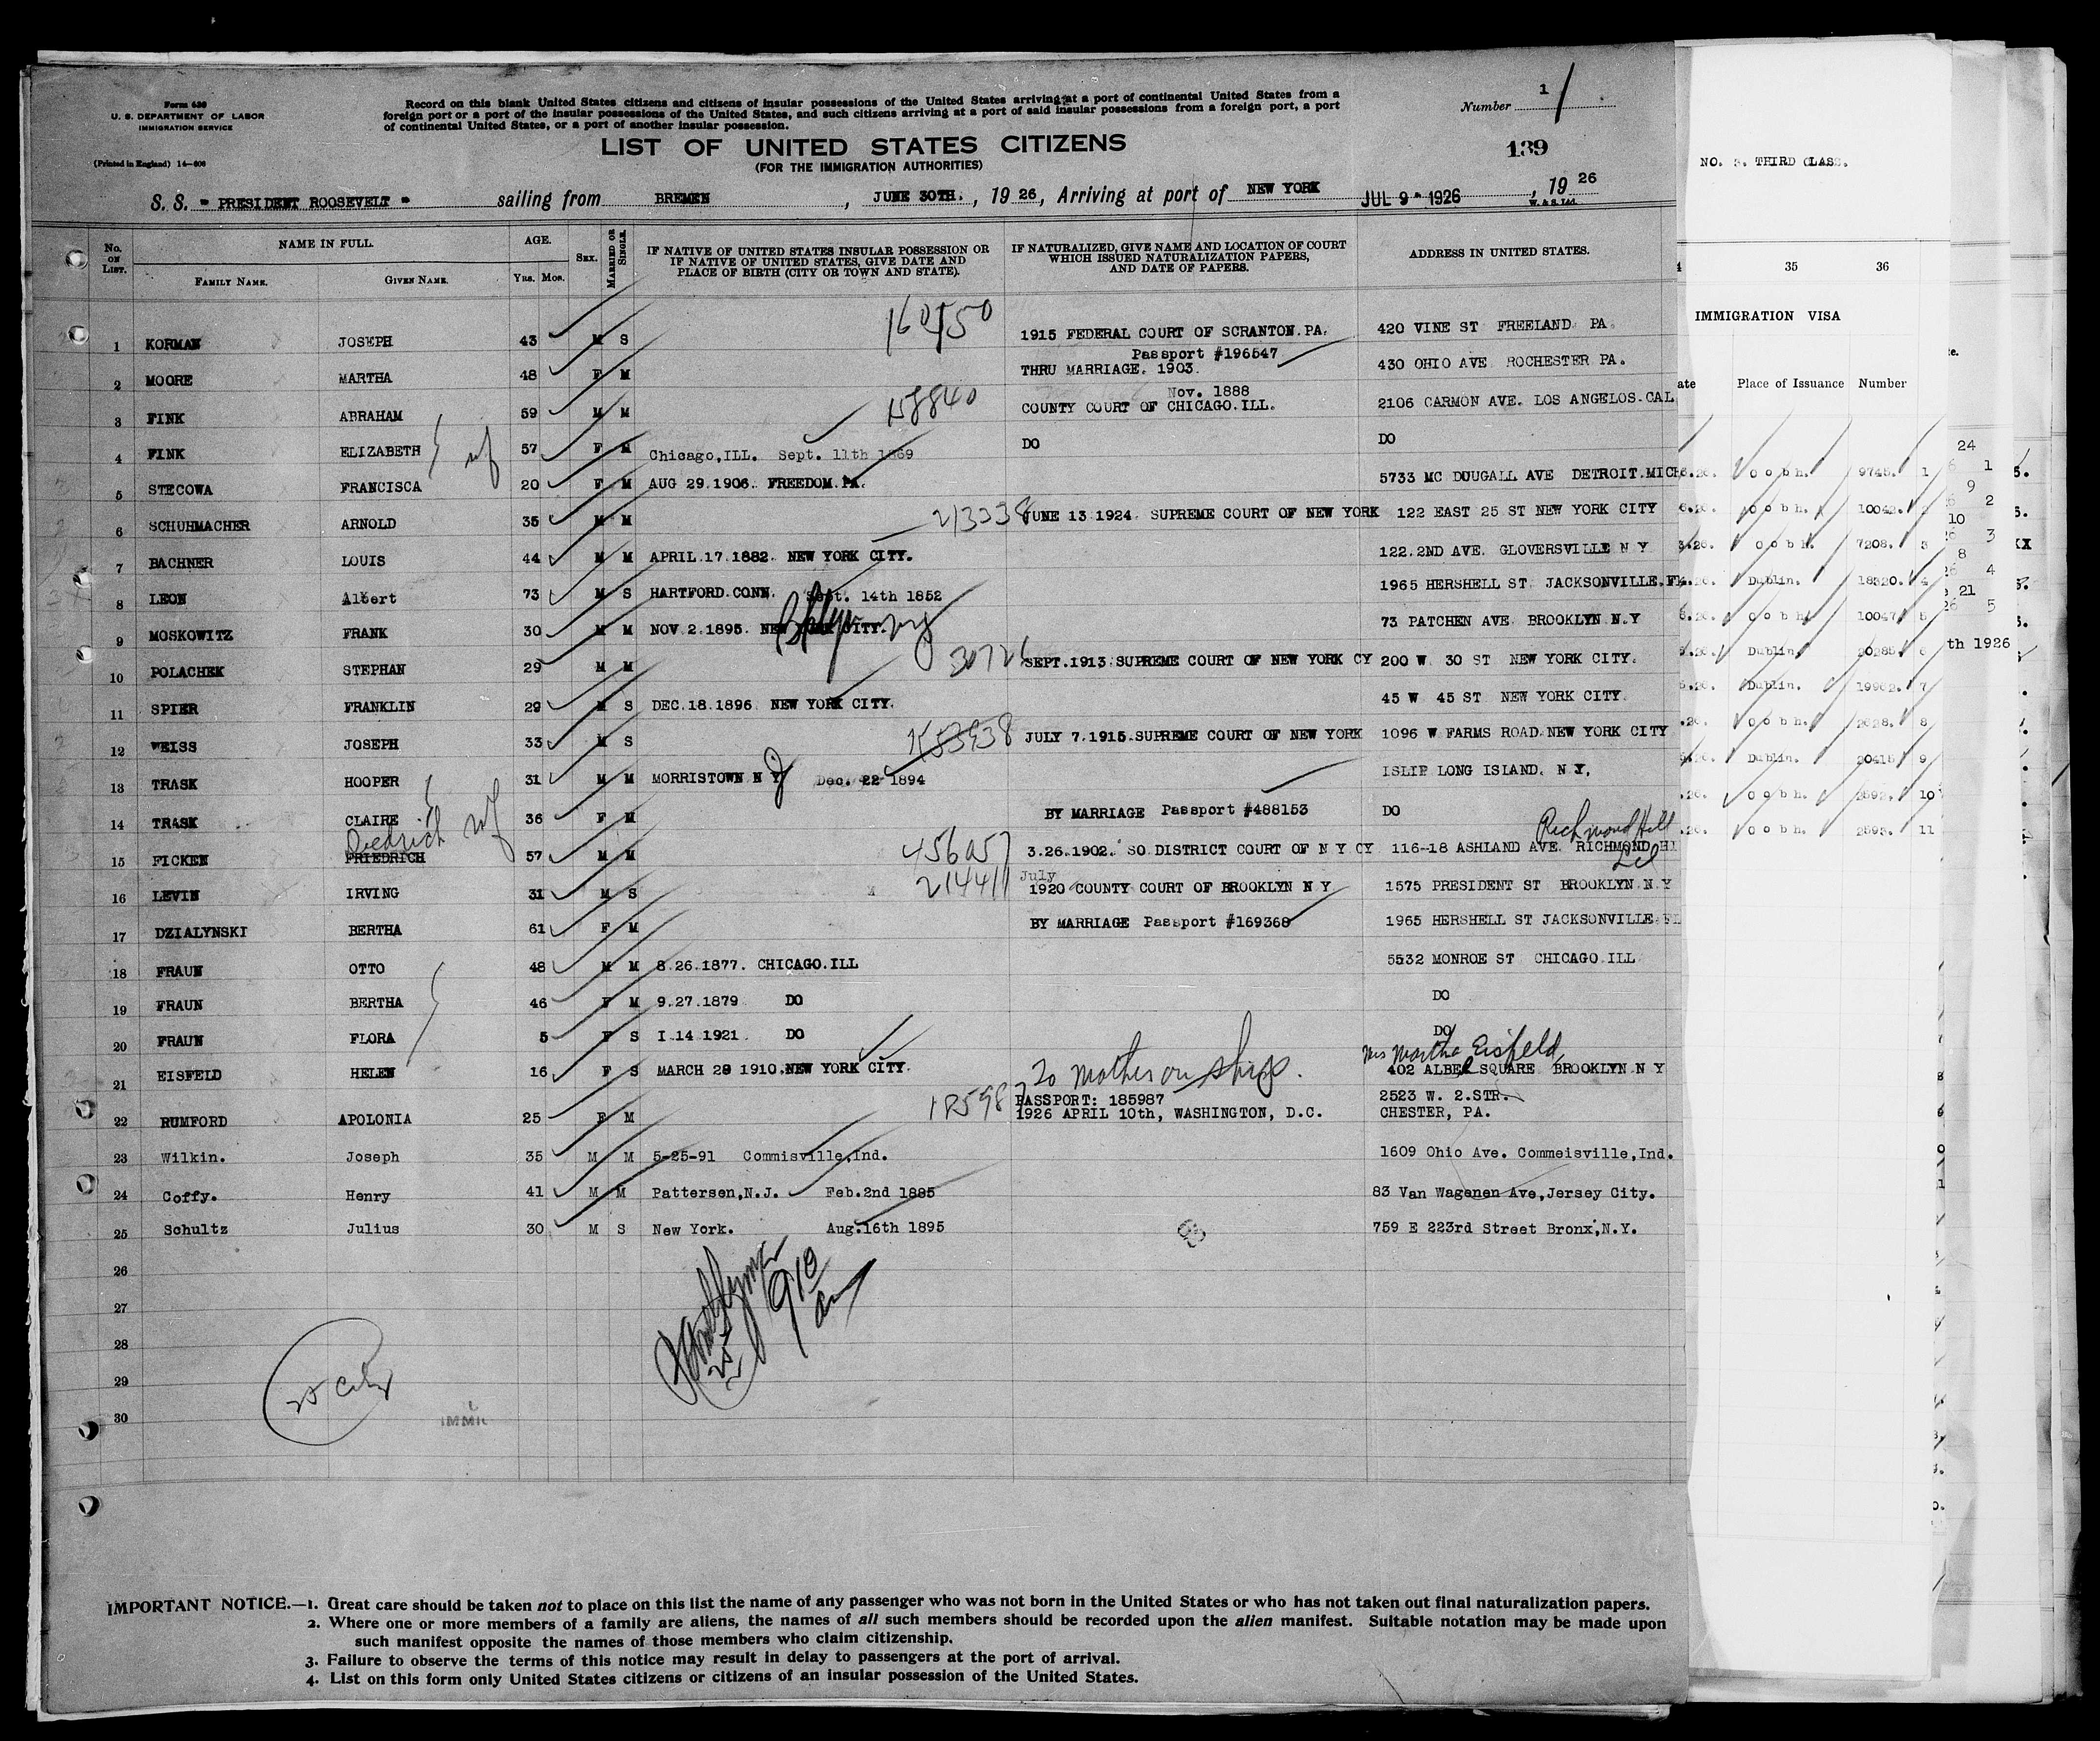 Form 630
U. S. DEPARTMENT OF LABOR
IMMIGRATION SERVICE
(Printed in England) 14—606
Record on this blank United States citizens and citizens of insular possessions of the United States arriving at a port of continental United States from a
foreign port or a port of the insular possessions of the United States, and such citizens arriving at a port of said insular possessions from a foreign port, a port
of continental United States, or a port of another insular possession.
Number 1
LIST OF UNITED STATES CITIZENS
(FOR THE IMMIGRATION AUTHORITIES)
139
S. S. " PRESIDENT ROOSEVELT " sailing from BREMEN , JUNE 30TH. , 19 26 , Arriving at port of NEW YORK JUL 9 - 1926 , 19 26
W. & S. Ltd.
No. ON LIST. NAME IN FULL. AGE. SEX. MARRIED OR SINGLE. IF NATIVE OF UNITED STATES INSULAR POSSESSION OR IF NATIVE OF UNITED STATES, GIVE DATE AND PLACE OF BIRTH (CITY OR TOWN AND STATE). IF NATURALIZED, GIVE NAME AND LOCATION OF COURT WHICH ISSUED NATURALIZATION PAPERS, AND DATE OF PAPERS. ADDRESS IN UNITED STATES.
FAMILY NAME. GIVEN NAME. YRS. MOS.
160150
1 KORMAN JOSEPH 43 M S 1915 FEDERAL COURT OF SCRANTON.PA. 420 VINE ST FREELAND PA.
Passport #196547
2 MOORE MARTHA 48 F M THRU MARRIAGE. 1903. 430 OHIO AVE ROCHESTER PA.
Nov. 1888
3 FINK ABRAHAM 59 M M 158840 COUNTY COURT OF CHICAGO.ILL. 2106 CARMON AVE. LOS ANGELOS.CAL
4 FINK ELIZABETH wf 57 F M Chicago,ILL. Sept. 11th 1869 DO DO
5 STECOWA FRANCISCA 20 F M AUG 29.1906. FREEDOM.PA. 5733 MC DOUGALL AVE DETROIT.MICH
6 SCHUHMACHER ARNOLD 35 M M 213338 JUNE 13 1924. SUPREME COURT OF NEW YORK 122 EAST 25 ST NEW YORK CITY
7 BACHNER LOUIS 44 M M APRIL.17.1882. NEW YORK CITY. 122.2ND AVE. GLOVERSVILLE N Y
8 LEON Albert 73 M S HARTFORD.CONN. Sept. 14th 1852 1965 HERSHELL ST JACKSONVILLE.FL
9 MOSKOWITZ FRANK 30 M M NOV 2.1895. NEW YORK CITY. 73 PATCHEN AVE BROOKLYN N.Y
10 POLACHEK STEPHAN 29 M M 30726 SEPT.1913.SUPREME COURT OF NEW YORK CY 200 W 30 ST NEW YORK CITY.
11 SPIER FRANKLIN 29 M S DEC.18.1896 NEW YORK CITY. 45 W 45 ST NEW YORK CITY
12 WEISS JOSEPH 33 M S 153938 JULY 7.1915.SUPREME COURT OF NEW YORK 1096 W FARMS ROAD.NEW YORK CITY
13 TRASK HOOPER 31 M M MORRISTOWN N Y J Dec. 22 1894 ISLIP LONG ISLAND. N Y.
14 TRASK CLAIRE wf 36 F M BY MARRIAGE Passport #488153 DO
Diedrich Richmond Hill
15 FICKEN FRIEDRICH 57 M M 456057 3.26.1902. SO DISTRICT COURT OF N Y CY 116-18 ASHLAND AVE RICHMOND HI
July
16 LEVIN IRVING 31 M S 214411 1920 COUNTY COURT OF BROOKLYN N Y 1575 PRESIDENT ST BROOKLYN N.Y
17 DZIALYNSKI BERTHA 61 F M BY MARRIAGE Passport #169368 1965 HERSHELL ST JACKSONVILLE FL
18 FRAUN OTTO 48 M M 8.26.1877. CHICAGO.ILL 5532 MONROE ST CHICAGO.ILL
19 FRAUN BERTHA 46 F M 9.27.1879 DO DO
20 FRAUN FLORA 5 F S I.14.1921. DO DO
To Mother on ship. Mrs Martha Eisfeld
21 EISFELD HELEN 16 F S MARCH 29 1910.NEW YORK CITY. 402 ALBEE SQUARE BROOKLYN N Y
185987 PASSPORT: 185987 2523 W. 2.STR.
22 RUMFORD APOLONIA 25 F M 1926 APRIL 10th, WASHINGTON, D.C. CHESTER, PA.
23 Wilkin. Joseph 35 M M 5-25-91 Commisville,Ind. 1609 Ohio Ave. Commeisville,Ind.
24 Coffy. Henry 41 M M Pattersen,N.J. Feb.2nd 1885 83 Van Wagenen Ave,Jersey City.
25 Schultz Julius 30 M S New York. Aug.16th 1895 759 E 223rd Street Bronx,N.Y.
26
27
28
29
30
IMPORTANT NOTICE.—1. Great care should be taken not to place on this list the name of any passenger who was not born in the United States or who has not taken out final naturalization papers.
2. Where one or more members of a family are aliens, the names of all such members should be recorded upon the alien manifest. Suitable notation may be made upon
such manifest opposite the names of those members who claim citizenship.
3. Failure to observe the terms of this notice may result in delay to passengers at the port of arrival.
4. List on this form only United States citizens or citizens of an insular possession of the United States.
THIRD CLASS.
35 36
IMMIGRATION VISA
Place of Issuance Number
C o b h. 9745. 1
C o b h. 10042. 2
C o b h. 7208. 3
Dublin. 18320. 4
C o b h. 10047 5
Dublin. 20285 6
Dublin. 19962. 7
C o b h. 2628. 8
Dublin. 20415 9
C o b h. 2592. 10
C o b h. 2593. 11
24
1
9
2
10
3
8
4
21
5
th 1926